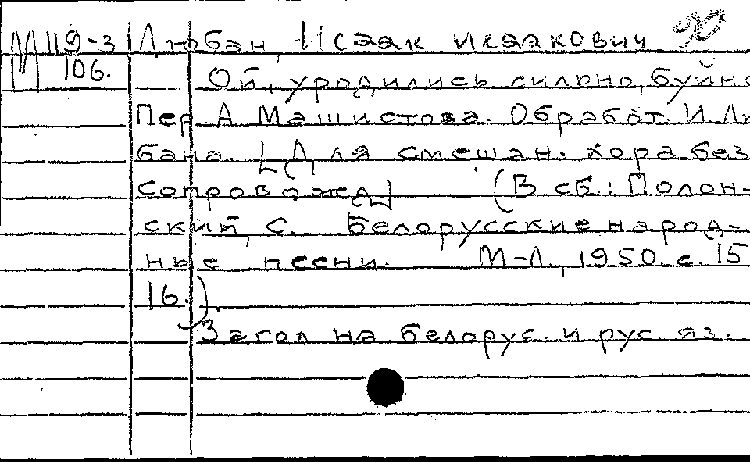 М 119-3 Любан, Исаак Исаакович
106. Ой, уродились сильно, буйно
Пер. А. Машистова. Обработ. И. Лю-
бана. [Для смешан. хора без
сопровожд.] (В сб.: Полон-
ский, С. Белорусские народ-
ные песни. М-Л., 1950. с. 15
16.).
Загол. на белорус. и рус. яз.